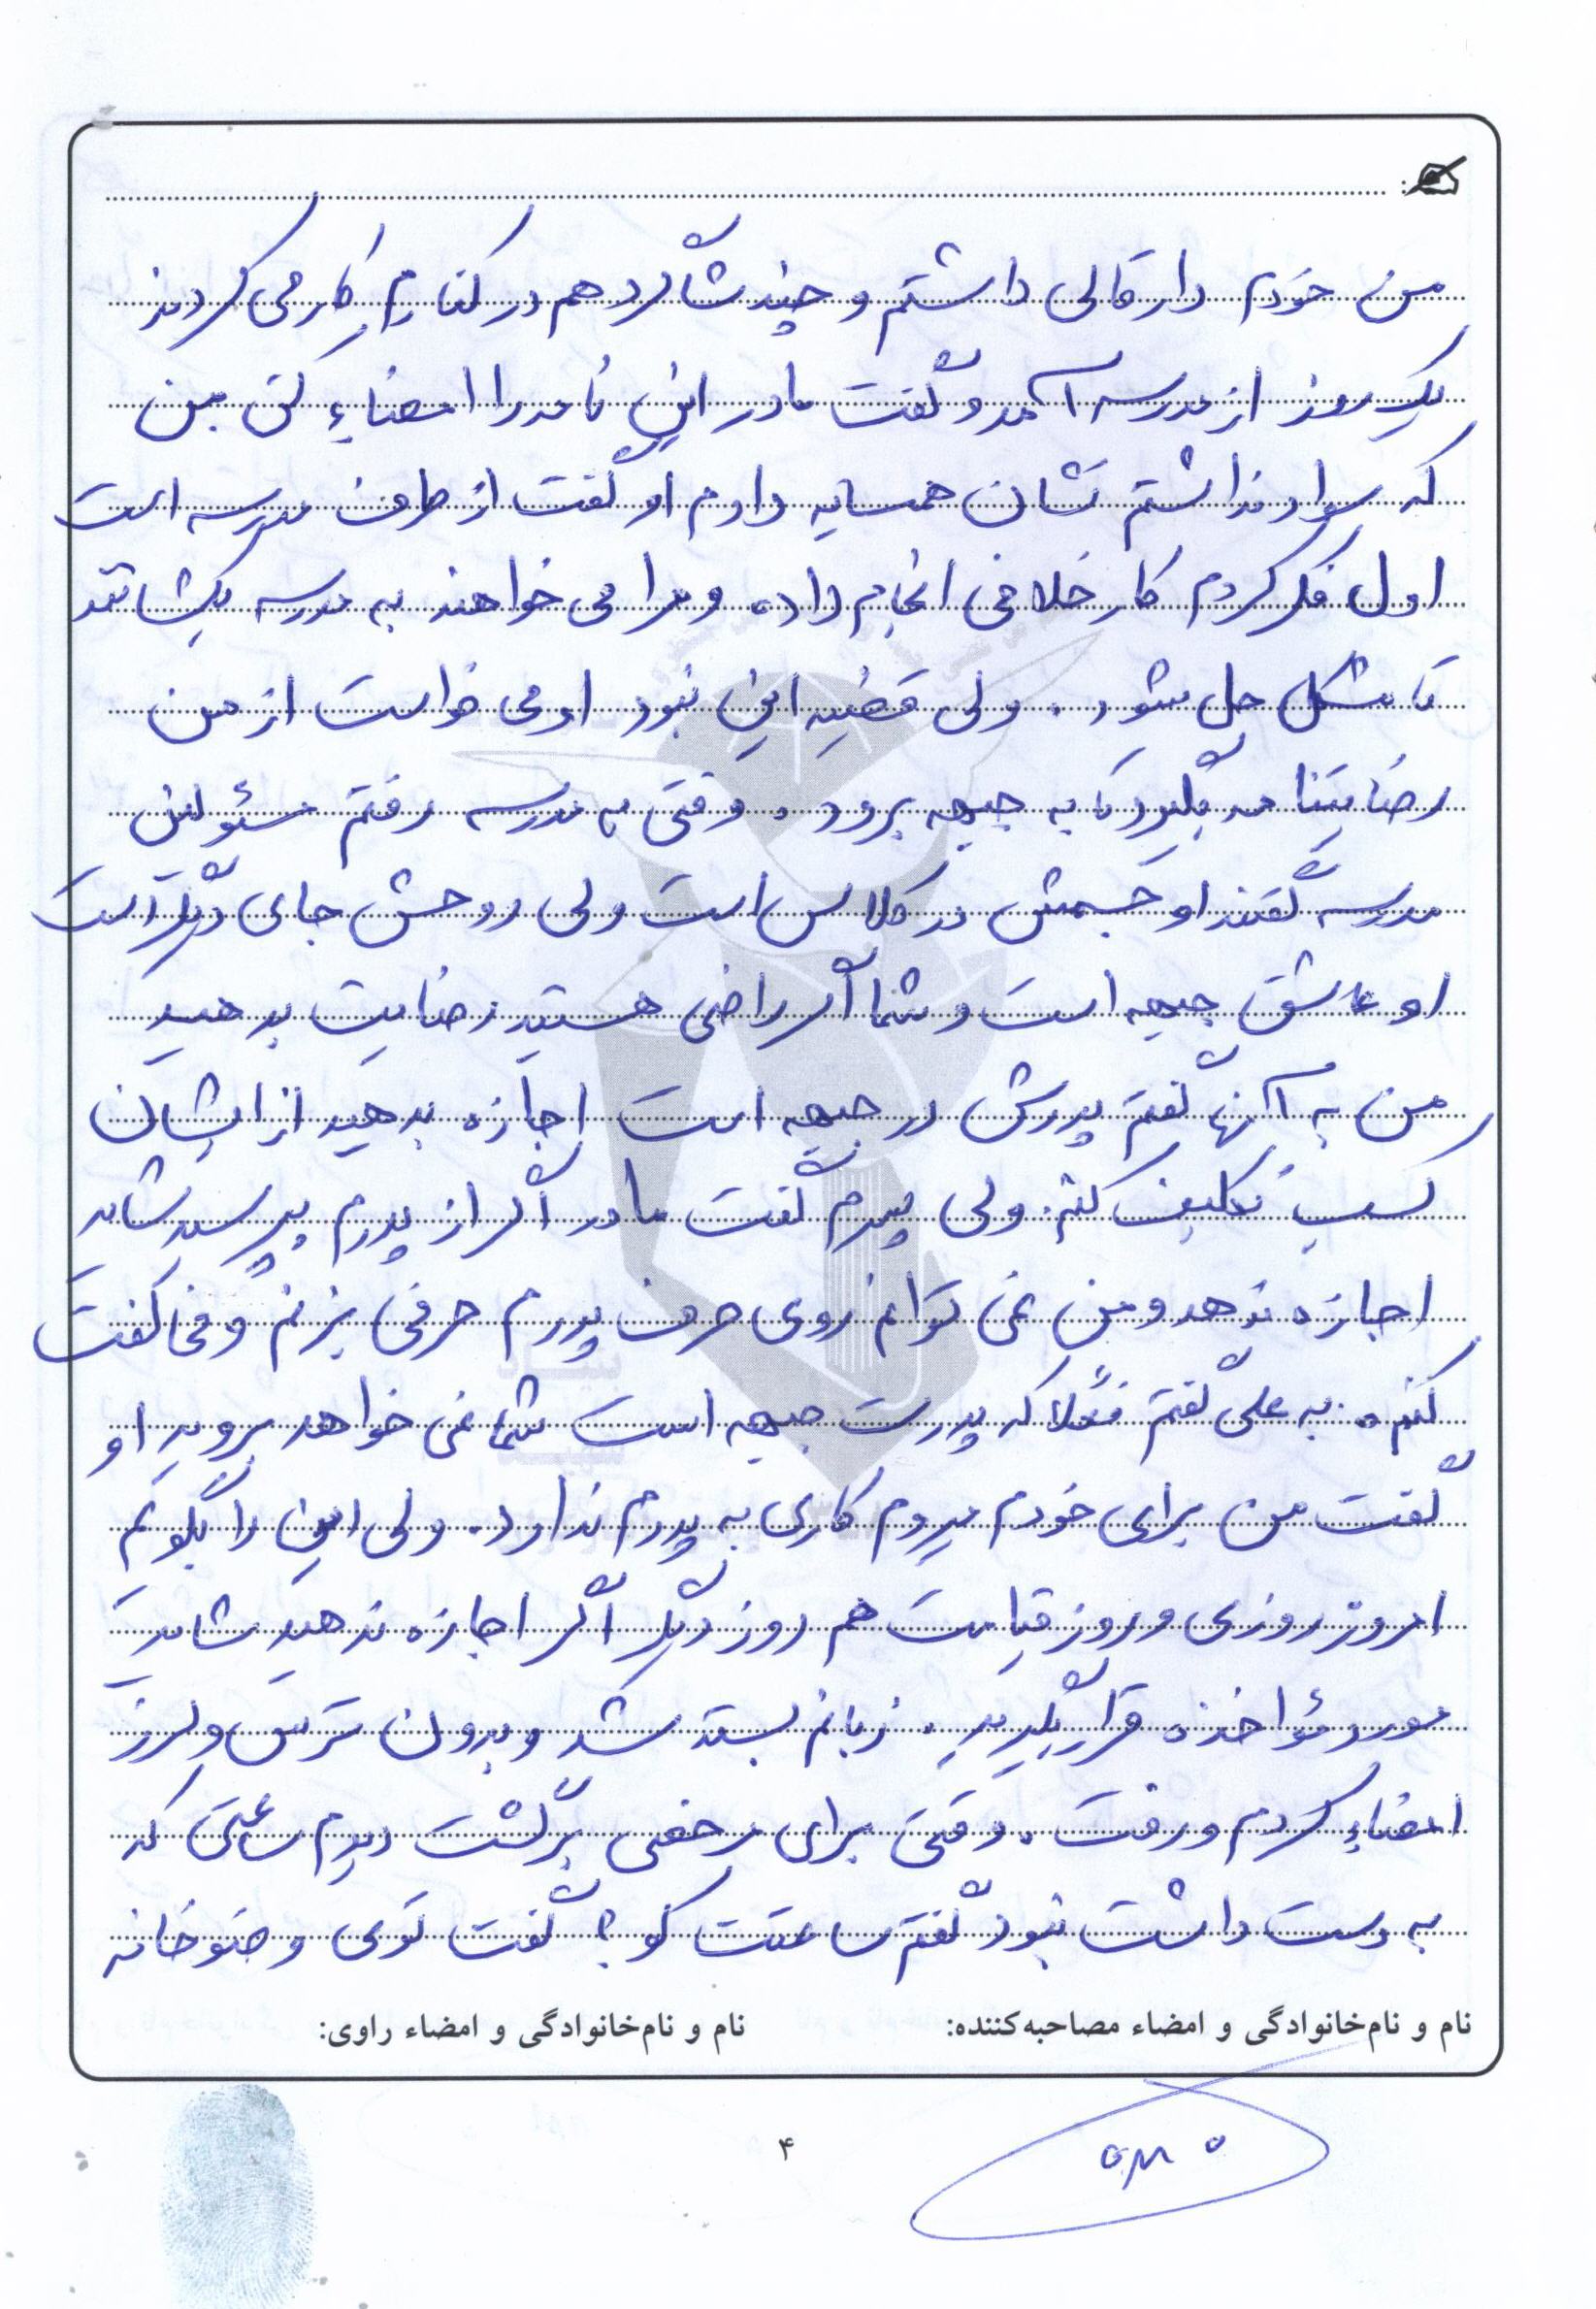 من خودم دار قالی داشتم و چند شاگرد هم در کنارم کار می کردند
یک روز از مدرسه آمد و گفت مادر این نامه را امضاء کن من
که سواد نداشتم نشان همسایه دادم او گفت از طرف مدرسه است
اول فکر کردم کار خلافی انجام داده و مرا می خواهند به مدرسه بکشانند
تا مشکل حل شود. ولی قضیه این نبود او می خواست از من
رضایتنامه بگیرد تا به جبهه برود. وقتی به مدرسه رفتم مسئولین
مدرسه گفتند او جسمش در کلاس است ولی روحش جای دیگر است
او عاشق جبهه است و شما اگر راضی هستید رضایت بدهید
من به آنها گفتم پدرش در جبهه است اجازه بدهید از ایشان
کسب تکلیف کنم. ولی پسرم گفت مادر اگر از پدرم بپرسید شاید
اجازه ندهد و من نمی توانم روی حرف پدرم حرفی بزنم و مخالفت
کنم. به علی گفتم فعلا که پدرت جبهه است شما نمی خواهد بروید او
گفت من برای خودم میروم کاری به پدرم ندارد. ولی این را بگویم
امروز روزی و روز قیامت هم روز دیگر اگر اجازه ندهید شاید
مورد مؤاخذه قرار بگیرید. زبانم بسته شد و بدون ترس و لرز
امضاء کردم و رفت. وقتی برای مرخصی برگشت دیدم ساعتی که
به دست داشت نبود گفتم ساعتت کو؟ گفت توی وضوخانه
نام و نام‌خانوادگی و امضاء مصاحبه‌کننده: نام و نام‌خانوادگی و امضاء راوی:
۴